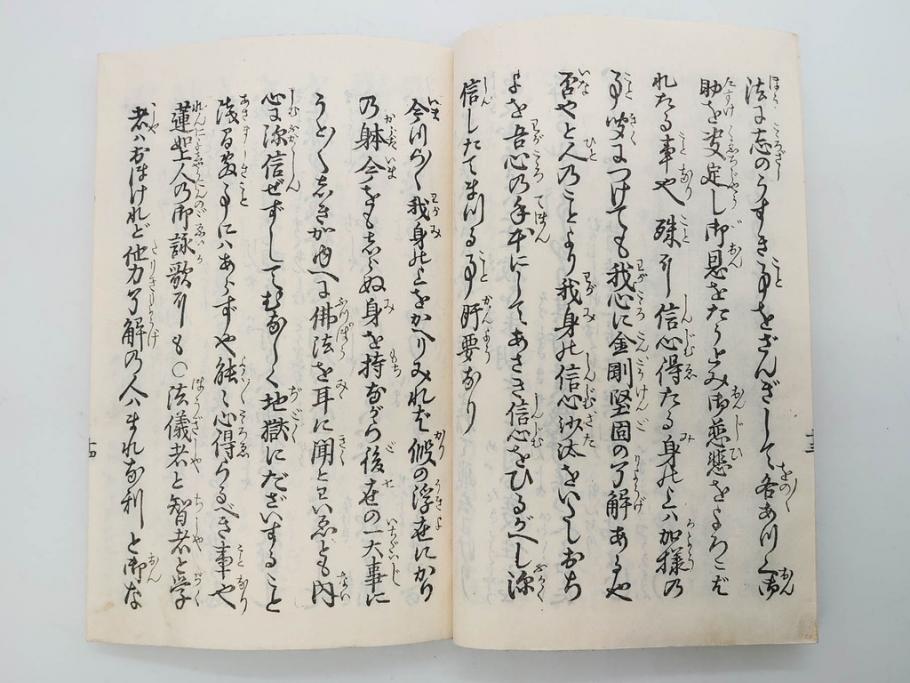 法に志のうすき事をざんぎして各あつく御
助を決定し御恩をたうとみ御慈悲をよろこば
れたる事や殊外信心得たる身の上ハ加様の
事聞につけても我心に金剛堅固の了解あるや
否やと人のことより我身の信心沙汰をいたしおち
よを吾心の手本にしてあさき信心をひるがへし深
信したてまつる事肝要なり
今つらつら我身の上をかへりみれば仮の浮世にかり
の躰今をもしらぬ身を持ながら後世の一大事に
うとうとしきがゆへに佛法を耳に聞といゑども内
心に深信ぜずしてむなしく地獄にだざいすること
浅間敷事にハあらずや能々心得らるべき事や
蓮如上人の御詠歌にも○法儀者と智者と学
者ハおほけれど他力了解の人ハまれなりと御な